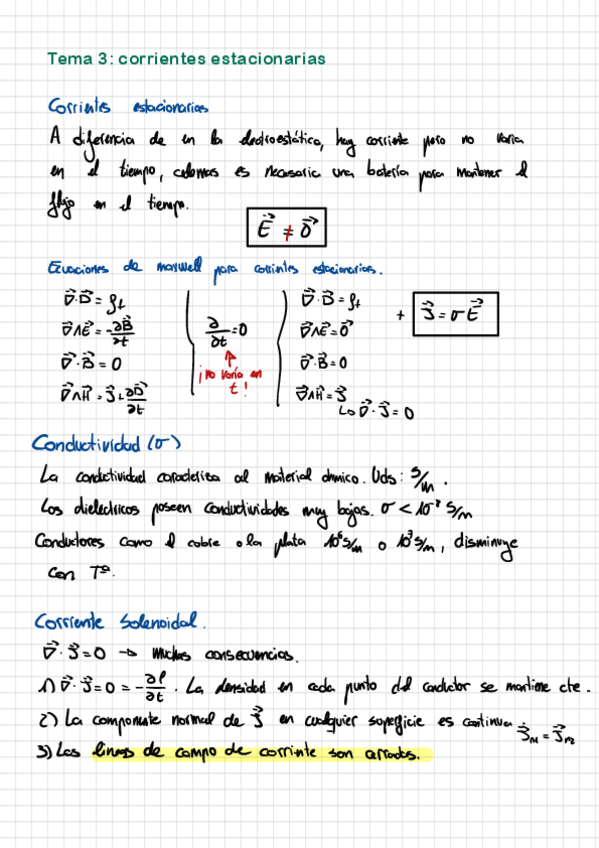 Tema 3: corrientes estacionarias
Corrientes estacionarias
A diferencia de en la electroestática, hay corriente pero no varia
en el tiempo, ademas es necesaria una batería para mantener el
flujo en el tiempo.
E⃗ ≠ 0⃗
Ecuaciones de maxwell para corrientes estacionarias.
∇⃗·D⃗ = ρt | ∇⃗·D⃗ = ρt
∇⃗∧E⃗ = -∂B⃗/∂t | ∂/∂t = 0 | ∇⃗∧E⃗ = 0⃗ + J⃗ = σE⃗
∇⃗·B⃗ = 0 | ¡no varía en t! | ∇⃗·B⃗ = 0
∇⃗∧H⃗ = J⃗ + ∂D⃗/∂t | ∇⃗∧H⃗ = J⃗
↳ ∇⃗·J⃗ = 0
Conductividad (σ)
La conductividad caracteriza al material ohmico. Uds: S/m.
Los dielectricos poseen conductividades muy bajas. σ < 10⁻⁸ S/m
Conductores como el cobre o la plata 10⁶ S/m o 10⁷ S/m, disminuye
con Tª.
Corriente solenoidal.
∇⃗·J⃗ = 0 → muchas consecuencias.
1) ∇⃗·J⃗ = 0 = -∂ρ/∂t. La densidad en cada punto del conductor se mantiene cte.
2) La componente normal de J⃗ en cualquier superficie es continua. J⃗n1 = J⃗n2
3) Las lineas de campo de corrinte son cerradas.